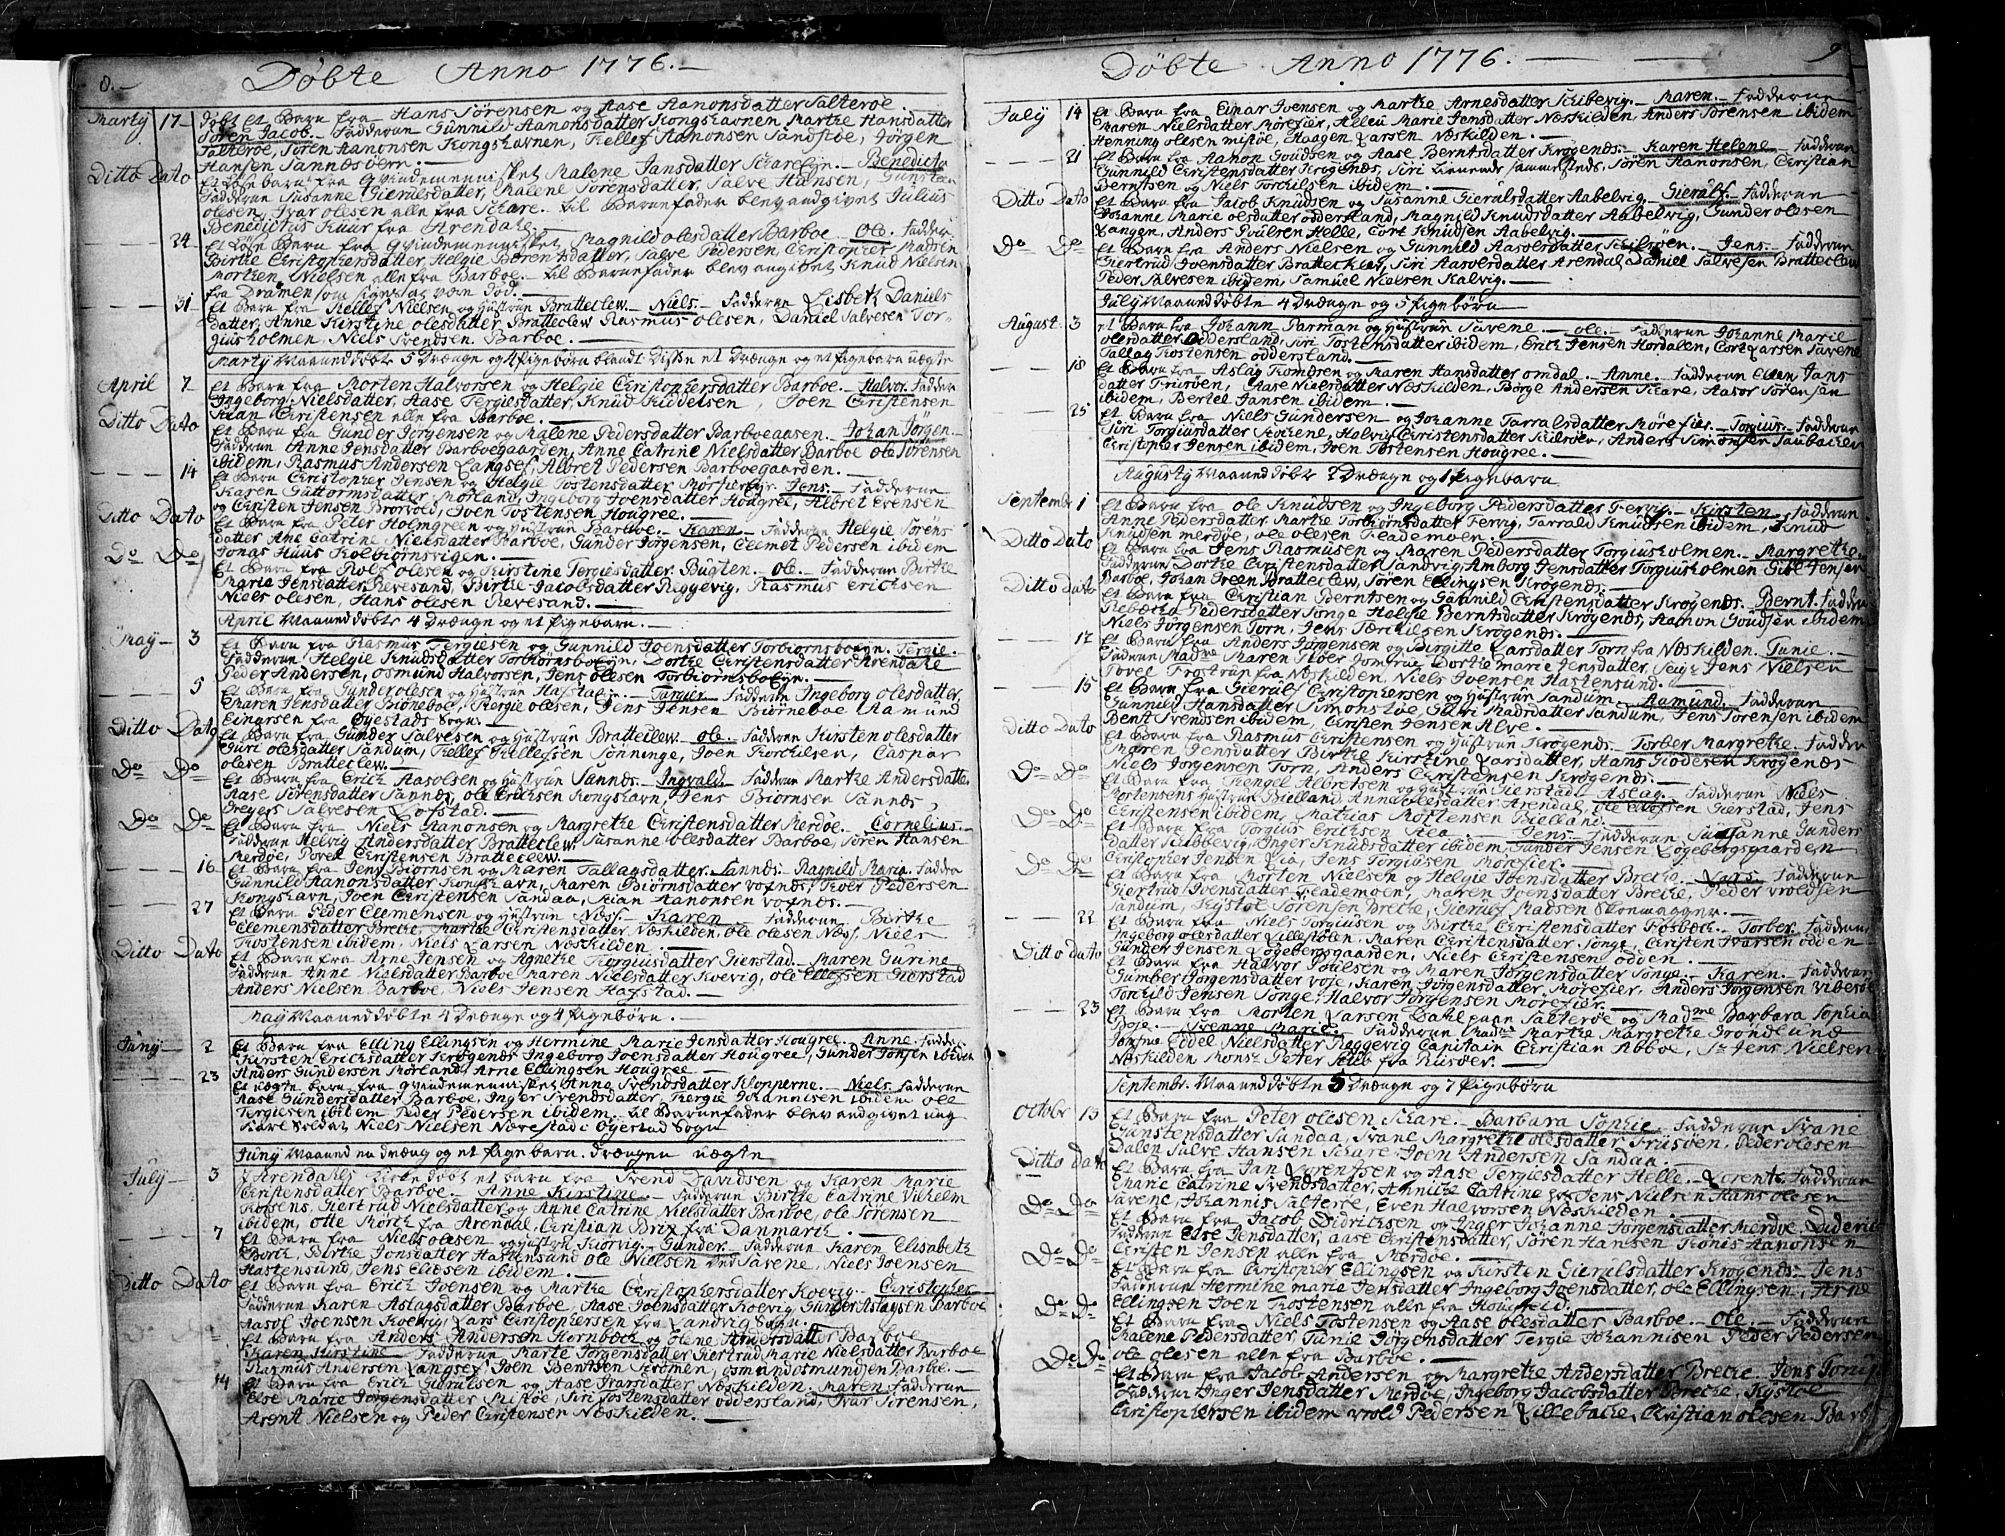 8.
Döbte Anno 1776.
Marty 17 döbt et Barn fra Hans Sörensen og Aase Aanonsdatter Salteröe.
Sören Jacob. Fadderne Gunnild Aanonsdatter Kongshavnen Marthe Hansdatter
Salteröe, Sören Aanonsen Kongshavnen, Kellef Aanonsen Sandstöe, Jörgen
Hansen Sannæs
Ditto Dato Et barn fra Qvindemennisket Malene Jansdatter Schare. Benedicte
Fadderne Susanne Gierulsdatter, Malene Sörensdatter, Salve Hansen, Gunsten
olesen, Ivar olesen alle fra Schare. til Barnefader blev angivet Julius
Benedictus Kuur fra Arendahl.
24 Et Barn fra Qvindemennisket Magnild olesdatter Barboe. Ole. Fadder
Birthe Christophersdatter, Helgie Börentsdatter, Salve Pedersen Christopher Madsen
Morthen Nielsen alle fra Barboe. til Barnefader blev angivet Knud Nielsen
fra Dramen som var död.
31 Et Barn fra Kellef Nielsen og Hustrun Bratteclew. Niels. Fadderne Lisbeth Daniels
datter, Anne Kirstine olesdatter Bratteclew Rasmus olesen, Daniel Salvesen Tor-
giusholmen, Niels Svendsen Barboe.
Marty Maaned döbte 5 Drænge og 4 Pigebörn blandt disse et Drænge og et Pigebarn uægte
April 7 Et Barn fra Morten Halvorsen og Helgie Christophersdatter Barboe. Halvor. Faddere
Ingeborg Nielsdatter, Aase Tergiesdatter, Knud Kiddelsen, Joen Christensen
Kian Christensen alle fra Barboe.
Ditto Dato Et Barn fra Gunder Jörgensen og Malene Pedersdatter Barboeaasen. Johan Jörgen.
Fadderne Anne Jensdatter Barboegaarden, Anne Catrine Nielsdatter Barboe ole Sörensen
ibidem, Rasmus Andersen Langsef, Albret Pedersen Barboegaarden.
14 Et Barn Christopher Jensen og Helgie Tostensdatter Jens. Fadderne
Karen Guttormsdatter Morland, Ingeborg Joensdatter Hougree, Albret Evensen
og Christen Jensen Joen Tostensen Hougree.
Ditto Dato Et Barn fra Peter Holmgreen og Hustrun Barboe. Karen. Fadderne Helgie Sörens
datter Ane Catrine Nielsdatter Barboe, Gunder Jörgensen, Clemet Pedersen ibidem
Jonas Huus Kolbiörnsvigen.
Do Do Et Barn fra Rolf olesen og Kirstine Tergiesdatter Bugten. Ole. Fadderne Birthe
Maria Jensdatter Revesand, Birthe Jacobsdatter Reggevig, Rasmus Erichsen
Niels olesen, Hans olesen Revesand.
April Maaned döbte 4 Drænge og et Pigebarn.
May 3 Et Barn fra Rasmus Tergiesen og Gunnild Joensdatter Torbiörnsboeyn. Tergie.
Fadderne Helgie Knudsdatter Torbiörnsboeyn, Dorthe Christensdatter Arendahl
Peder Andersen, osmund Halvorsen, Jens olesen Torbiörnsboeyn.
5 Et Barn fra Gunder olesen og Hustrun Hafstad. Torgier. Fadderne Ingeborg olesdatter,
Karen Jensdatter Biörneboe, Tergie olesen, Jens Jensen Biörneboe Aamund
Einarsen fra Öyestads Sogn.
Ditto Dato Et Barn fra Gunder Salvesen og Hustrun Bratteclew. Ole. Fadderne Kirsten olesdatter
Guri olesdatter Sandum, Kellef Kellefsen Sönninge, Joen Torkilsen, Caspar
olesen Bratteclew.
Do Do Et Barn fra Erich Aasolsen og Hustrun Sannæs. Ingvald. Fadderne Marthe Andersdatter
Aase Sörensdatter Sannæs, ole Erichsen Kongshavn, Jens Biörnsen Sannæs,
Gregers Salvesen Lofstad.
Do Do Et Barn fra Niels Aanonsen og Margrethe Christensdatter Merdöe. Cornelius.
Fadderne Helvig Andersdatter Bratteclew Susanne olesdatter Barboe, Sören Hansen
Merdöe, Povel Christensen Bratteclew.
16 Et Barn fra Jens Biörnsen og Maren Tallagsdatter Sannæs. Ragnild Maria. Fadde
Gunnild Aanonsdatter Kongshavn, Maren Biörnsdatter vofnæs, Peder
Kongshavn, Joen Christensen Sandaa, Kian Aanonsen vofnæs.
27 Et Barn Peder Clemensen og Hustrun Næss. Karen Fadderne Birthe
Clemensdatter Breke, Marthe Christensdatter Næskilden, ole olesen Næss, Niels
Tostensen ibidem, Niels Larsen Næskilden.
Ditto Dato Et Barn fra Arne Jensen og Agnethe Torgiusdatter Gierstad. Maren Gurine
Fadderne Anne Nielsdatter Barboe Karen Nielsdatter Koevig, ole Ellefsen Gierstad
Anders Nielsen Barboe, Niels Jensen Hafstad.
May Maaned döbte 4 Drænge og 4 Pigebörn.
Juny 2 Et Barn fra Elling Ellingsen og Hermine Marie Jensdatter Hougree. Anne. Fadder
Kirsten Erichsdatter Krögenæs Ingeborg Joensdatter Hougree, Gunder Jonsen ibidem
Anders Gundersen Morland, Arne Ellingsen Hougree.
23 Et uægte barn fra Qvindemennisket Anne Svendsdatter Klopperne. Niels. Fadderne
Aase Gundersdatter Barboe, Inger Svendsdatter, Tergie Johannisen ibidem ole
Tergiesen ibidem Peder Pedersen ibidem. til Barnefader blev angivet ung
Karl Soldat Niels Nielsen Nærestad i Öyestad Sogn
Juny Maaned en Dræng og et Pigebarn. Drængen uægte
July 3 I Arendahls Kirke döbt et barn fra Svend Davidsen og Karen Marie
Christensdatter Barboe. Anne Kirstine. Fadderne Birthe Catrine Vilhelm
Gertrud Nielsdatter og Anne Catrine Nielsdatter Barboe, ole Sörensen
ibidem, otte Mörch fra Arendal, Christian Brix fra Danmarch.
7 Et Barn fra Niels olesen og Hustrun Kiörvig. Gunder. Fadderne Karen Elisabeth
Borch, Birthe Jonsdatter Hastensund ole Nielsen Sæsene, Niels Joensen
Hastensund Jens Eliesen ibidem.
Ditto Dato Et Barn fra Erich Joensen og Marthe Christophersdatter Koevig. Christopher.
Fadderne Karen Aslagsdatter Barboe, Aase Joensdatter Koevig Gunder Aslagsen Barboe
Aasol Joensen Koevig, Lars Christophersen fra Landvig Sogn.
Et Barn fra Anders Andersen Hornbech og olene Andersdatter Barboe
Karen Kirstine. Fadderne Marte Jörgensdatter Gertrud Marie Nielsdatter Barboe
Rasmus Andersen Langsef Joen Bentsen osmund osmundsen Barboe.
14 Et Barn fra Erich Gierulsen og Aase Ivarsdatter Næskilden. Maren. Fadderne
Else Marie Jörgensdatter Mistöe, Siri Tostensdatter oddersland, Ivar Sörensen,
Arent Nielsen og Peder Christensen Næskilden.
9
Döbte Anno 1776.
July 14 Et Barn fra Einar Joensen og Marthe Arnesdatter Schibevig. Maren. Fadderne
Maren Nielsdatter Mörefier, Allen Marie Jensdatter Næskilden Anders Sörensen ibidem
Henning olesen Mistöe, Haagen Larsen Næskilden.
21 Et Barn fra Aamon Goudsen og Aase Berntsdatter Krögenæs. Karen Helene. Fadderne
Gunnild Christensdatter Krögenæs, Siri sammesteds, Sören Aanonsen Christian
Berntsen og Niels Torchilsen ibidem.
Ditto Dato Et Barn fra Jacob Knudsen og Susanne Gierulsdatter Aabelvig. Gierulf. Fadderne
Johanne Marie olesdatter oddersland, Magnild Knudsdatter Aabelvig, Gunder olesen
Langen, Anders Poulsen Helle, Cort Knudsen Aabelvig.
Do Do Et Barn fra Anders Nielsen og Gunnild Aasolsdatter Schilsöen. Jens. Fadderne
Giertrud Joensdatter Bratteclew, Siri Aasolsdatter Arendal Daniel Salvesen Bratteclew
Peder Salvesen ibidem, Samuel Nielsen Kalvig.
July Maaned döbte 4 Drænge og 5 Pigebörn
August 3 et Barn fra Johann Parman og Hustrun Savene. Ole. Fadderne Johanne Marie
olesdatter Oddersland, Siri Tostensdatter ibidem, Erich Jensen Hordalen, Cort Larsen Savene
Tallag Tostensen oddersland.
18 Et Barn fra Aslag Tomdsen og Maren Hansdatter omdal. Anne. Fadderne Ellen Jans
datter Trisöen, Aase Nielsdatter Næskilden, Börge Andersen Schare, Aasor Sörensen
ibidem, Bertel Jansen ibidem.
25 Et Barn fra Niels Gundersen og Johanne Tarralsdatter Mörefier. Torgius. Fadderne
Siri Torgiusdatter Helvig Christensdatter Schilsöen, Anders Simonsen Saubachen
Christopher Jensen ibidem, Joen Tostensen Hougree.
Augusty Maaned döbt 2 Drænge og 1 Pigebarn
Septembr 1 Et Barn fra ole Knudsen og Ingeborg Pedersdatter Fervig. Kirsten. Fadderne
Anne Pedersdatter Marthe Torbiörnsdatter Fervig, Tarrald Knudsen ibidem, Knud
Knudsen Merdöe, ole olesen Flademoen.
Ditto Dato Et Barn fra Jens Rasmusen og Maren Pedersdatter Torgiusholmen. Margrethe.
Fadderne Dorthe Christensdatter Sandvig, Amborg Jensdatter Torgiusholmen Gisle Jensen
Barboe, Johan Green Bratteclew, Sören Ellingsen Krögenæs.
Ditto Dato Et Barn fra Christian Berntsen og Gunnild Christensdatter Krögenæs. Bernt. Fadderne
Rebecka Pedersdatter Songe Helche Berntsdatter Krögenæs, Aamon Goudsen ibidem
Niels Jörgensen Torn, Jens Torchilsen Krögenæs.
12 Et Barn fra Anders Jörgensen og Birgitte Larsdatter Torn fra Næskilden. Tunie.
Fadderne Madme Maren Dorthe marie Jensdatter, Seigr Jens Nielsen
Povel Frostrup fra Næskilden, Niels Joensen Hastensund.
15 Et Barn fra Gierulf Christophersen og Hustrun Sandum. Aamund. Fadderne
Gunnild Hansdatter Simonstöe, Guri Madsdatter Sandum, Jens Sörensen ibidem
Bent Svendsen ibidem, Christen Jensen Alve.
Ditto Dato Et Barn fra Rasmus Christensen og Hustrun Krögenæs. Torber Margrethe. Fadderne
Maren Jensdatter Birthe Kirstine Larsdatter, Hans Todesen Krögenæs
Niels Jörgensen Torn, Anders Christensen Krögenæs.
Do Do Et Barn fra Tengel Albretsen og Hustrun Gierstad. Aslag. Fadderne Niels
Mortensens Hustrun Bielland, Anne olesdatter Arendal, ole Ellefsen Gierstad, Jens
Christensen ibidem, Mathias Mortensen Bielland.
Do Do Et Barn fra Torgius Erichsen Jens. Fadderne Susanne Gunders
datter Schibbevig, Inger Knudsdatter ibidem, Gunder Jensen Lögebergsgaarden
Christopher Jensen Lia, Jens Torgiusen Mörefier.
Do Do Et Barn fra Morten Nielsen og Helgie Joensdatter Breche. Lars. Fadderne
Giertrud Joensdatter Flademoen, Maren Joensdatter Breche, Peder vroldsen
Sandum, Kystol Sörensen Breche, Gierulf Madsen Skomagger.
22 Et Barn fra Niels Torgiusen og Birthe Christensdatter Fosbæch. Torber. Fadderne
Ingeborg olesdatter Lillestölen, Maren Christensdatter Songe, Christen Ivarsen odden
Gunder Jensen Lögebergsgaarden, Niels Christensen odden.
Ditto dato Et Barn fra Halvor Poulsen og Maren Jörgensdatter Songe. Karen. Fadderne
Gumber Jörgensdatter voje, Karen Jörgensdatter Mörefier, Anders Jörgensen Vibesöe
Torkild Jensen Songe, Halvor Jörgensen Mörefier.
23 Et Barn fra Morten Larsen Dahl paa Salteröe og Madme Barbara Sophia
Boje. Svenne Marie. Fadderne Madme Marthe Margrethe Grondlund
Jomfrue Eddel Nielsdatter Reggevig Capitain Christian Abboe, Sr Jens Nielsen
Næskilden Monsr Peter fra Risöer.
Septembr. Maaned döbte 5 Drænge og 7 Pigebörn
Octobr 13 Et Barn fra Peter olesen Schare. Barbara Sophie. Fadderne Svane
Gunstensdatter Sandaa, Svane Margrethe olesdatter Trisöen, Peder olesen
Dalen Salve Hansen Schare Joen Andersen Sandaa.
Ditto Dato Et Barn fra Jan Lorentsen og Aase Tergiesdatter Helle. Lorents. Fadderne
Marie Catrine Svendsdatter, Anniche Cathrine Jens Nielsen Hans olesen
Savene, Johannis Salteröe, Even Halvorsen Næskilden.
Do Do Et Barn fra Jacob Didrichsen og Inger Johanne Jörgensdatter Merdöe. Diderich
Fadderne Else Jensdatter, aase Christensdatter, Sören Hansen Tönis Aanonsen
Christen Jensen alle fra Merdöe.
Do Do Et Barn fra Christopher Ellingsen og Kirsten Gierulsdatter Krögenæs. Jens
Fadderne Hermine marie Jensdatter Ingeborg Joensdatter, ole Ellingsen, Arne
Ellingsen Joen Tostensen alle fra Hougreid.
Do Do Et Barn fra Niels Tostensen og Aase olesdatter Barboe. Ole. Fadderne
Malene Pedersdatter Tunie Jörgensdatter Tergie Johannisen Peder Pedersen
ole olesen alle fra Barboe.
Do Do Et Barn fra Jacob Andersen og Margrethe Andersdatter Breche. Jens Tönis
Fadderne Inger Jensdatter Merdöe, Ingeborg Jacobsdatter Breche, Kystol
Christophersen ibidem vrold Pedersen Lillebache, Christian olesen Barb